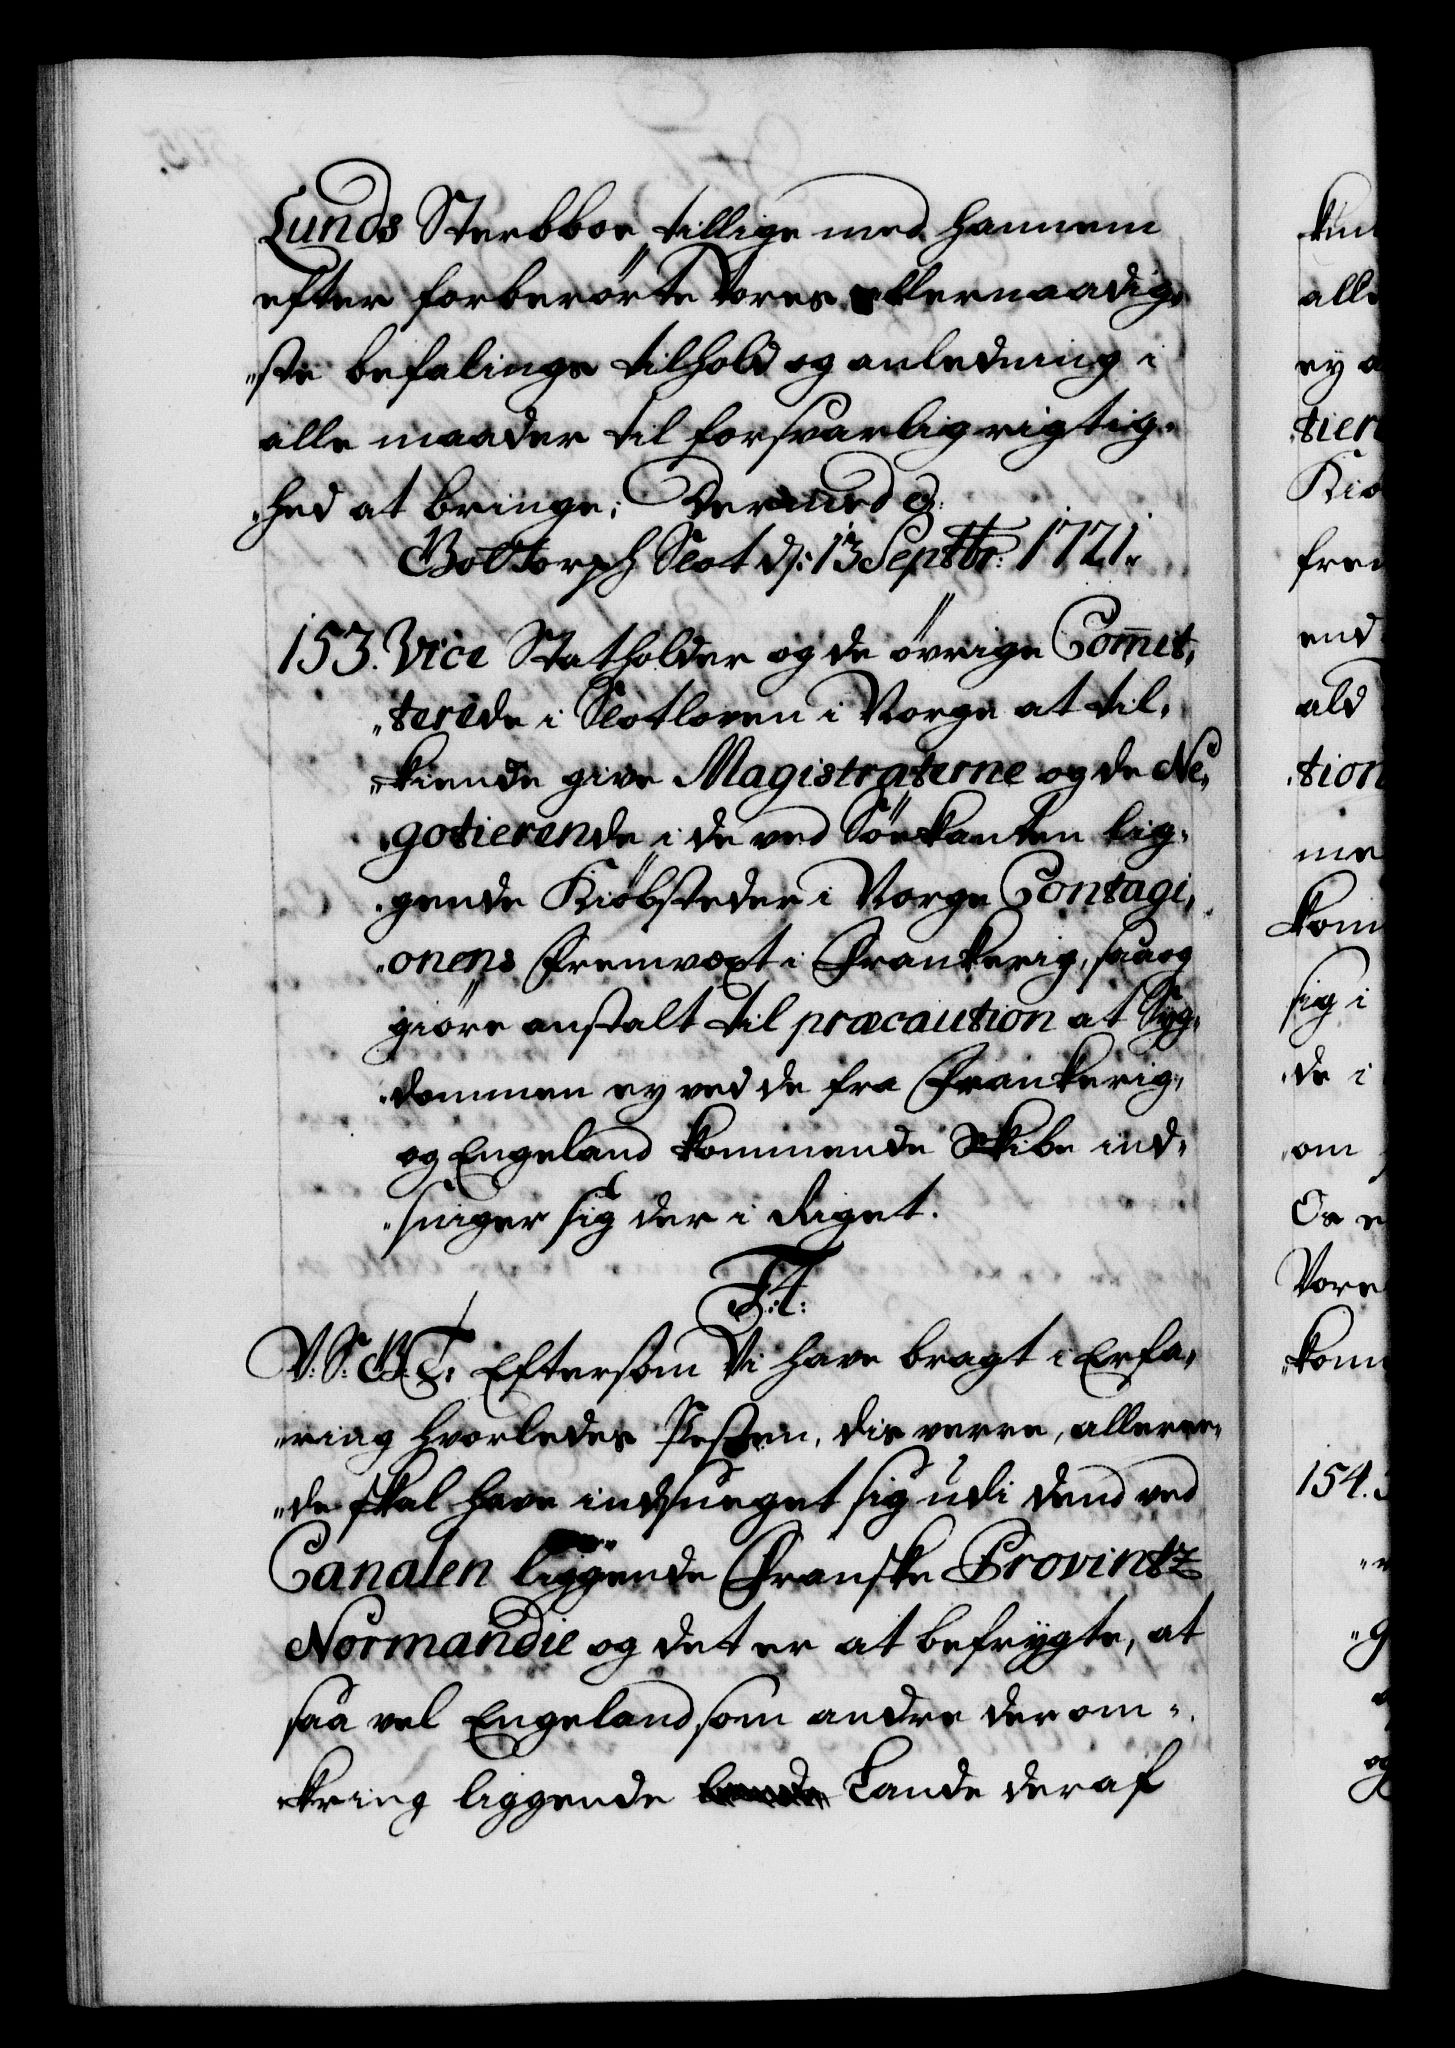 Lunds Sterbboe tillige med hannem
efter forberörte Vores allernaadig,
„ste befalings tilhold og anledning i
alle maader til forsvarlig rigtig,
„hed at bringe; Dermed &.
Gottorph Slot d: 13 Septbr: 1721.
153. Vice Statholder og de övrige Com̅it,
„terede i Slotloven i Norge at til,
„kiende give Magistraterne og de Ne,
„gotierende i de ved Söekanten lig,
„gende Kiöbsteder i Norge Contagi,
„onens Fremvext i Frankerig, saa og
giöre anstalt til præcaution at Syg,
„dommen ey ved de fra Frankerig,
og Engeland kommende Skibe ind,
„sniger sig der i Riget.
F:4:
V: S: G. T: Eftersom Vi have bragt i Erfa,
„ring hvorledes Pesten, dis verre, alleree,
„de skal have indsneget sig udi dend ved
Canalen liggende Franske Provintz
Normandie og det er at befrygte, at
saa vel Engeland som andre der om,
„kring liggende Lande deraf
kun
alle
ey a
„tier
Kiö
frem
end
ald
„tion
me
kom
sig i
„de i
om
Os e
Vore
„kom
154.